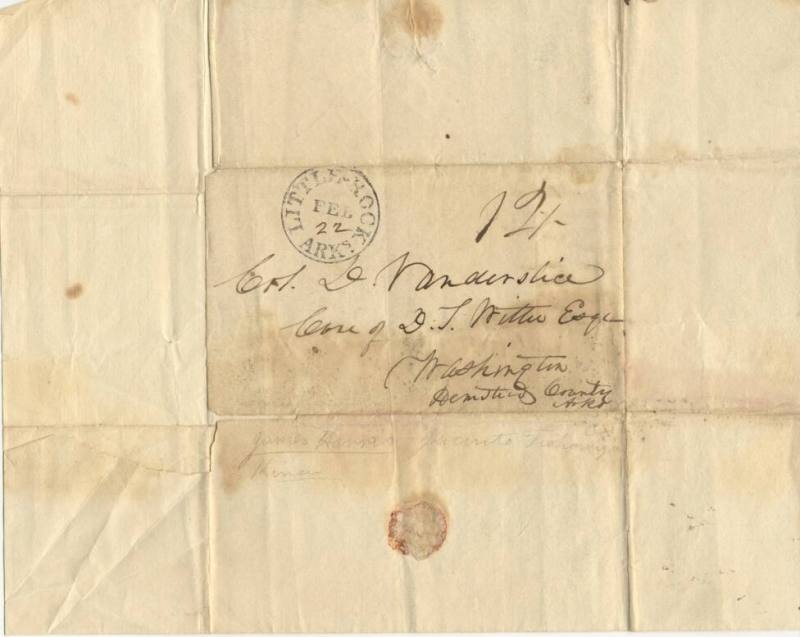 LITTLE ROCK
FEB
22
ARKs.
12/-
Col. D. Vanderslice
Care of D. T. Witter Esqr
Washington
Hemstead County
Arks
James